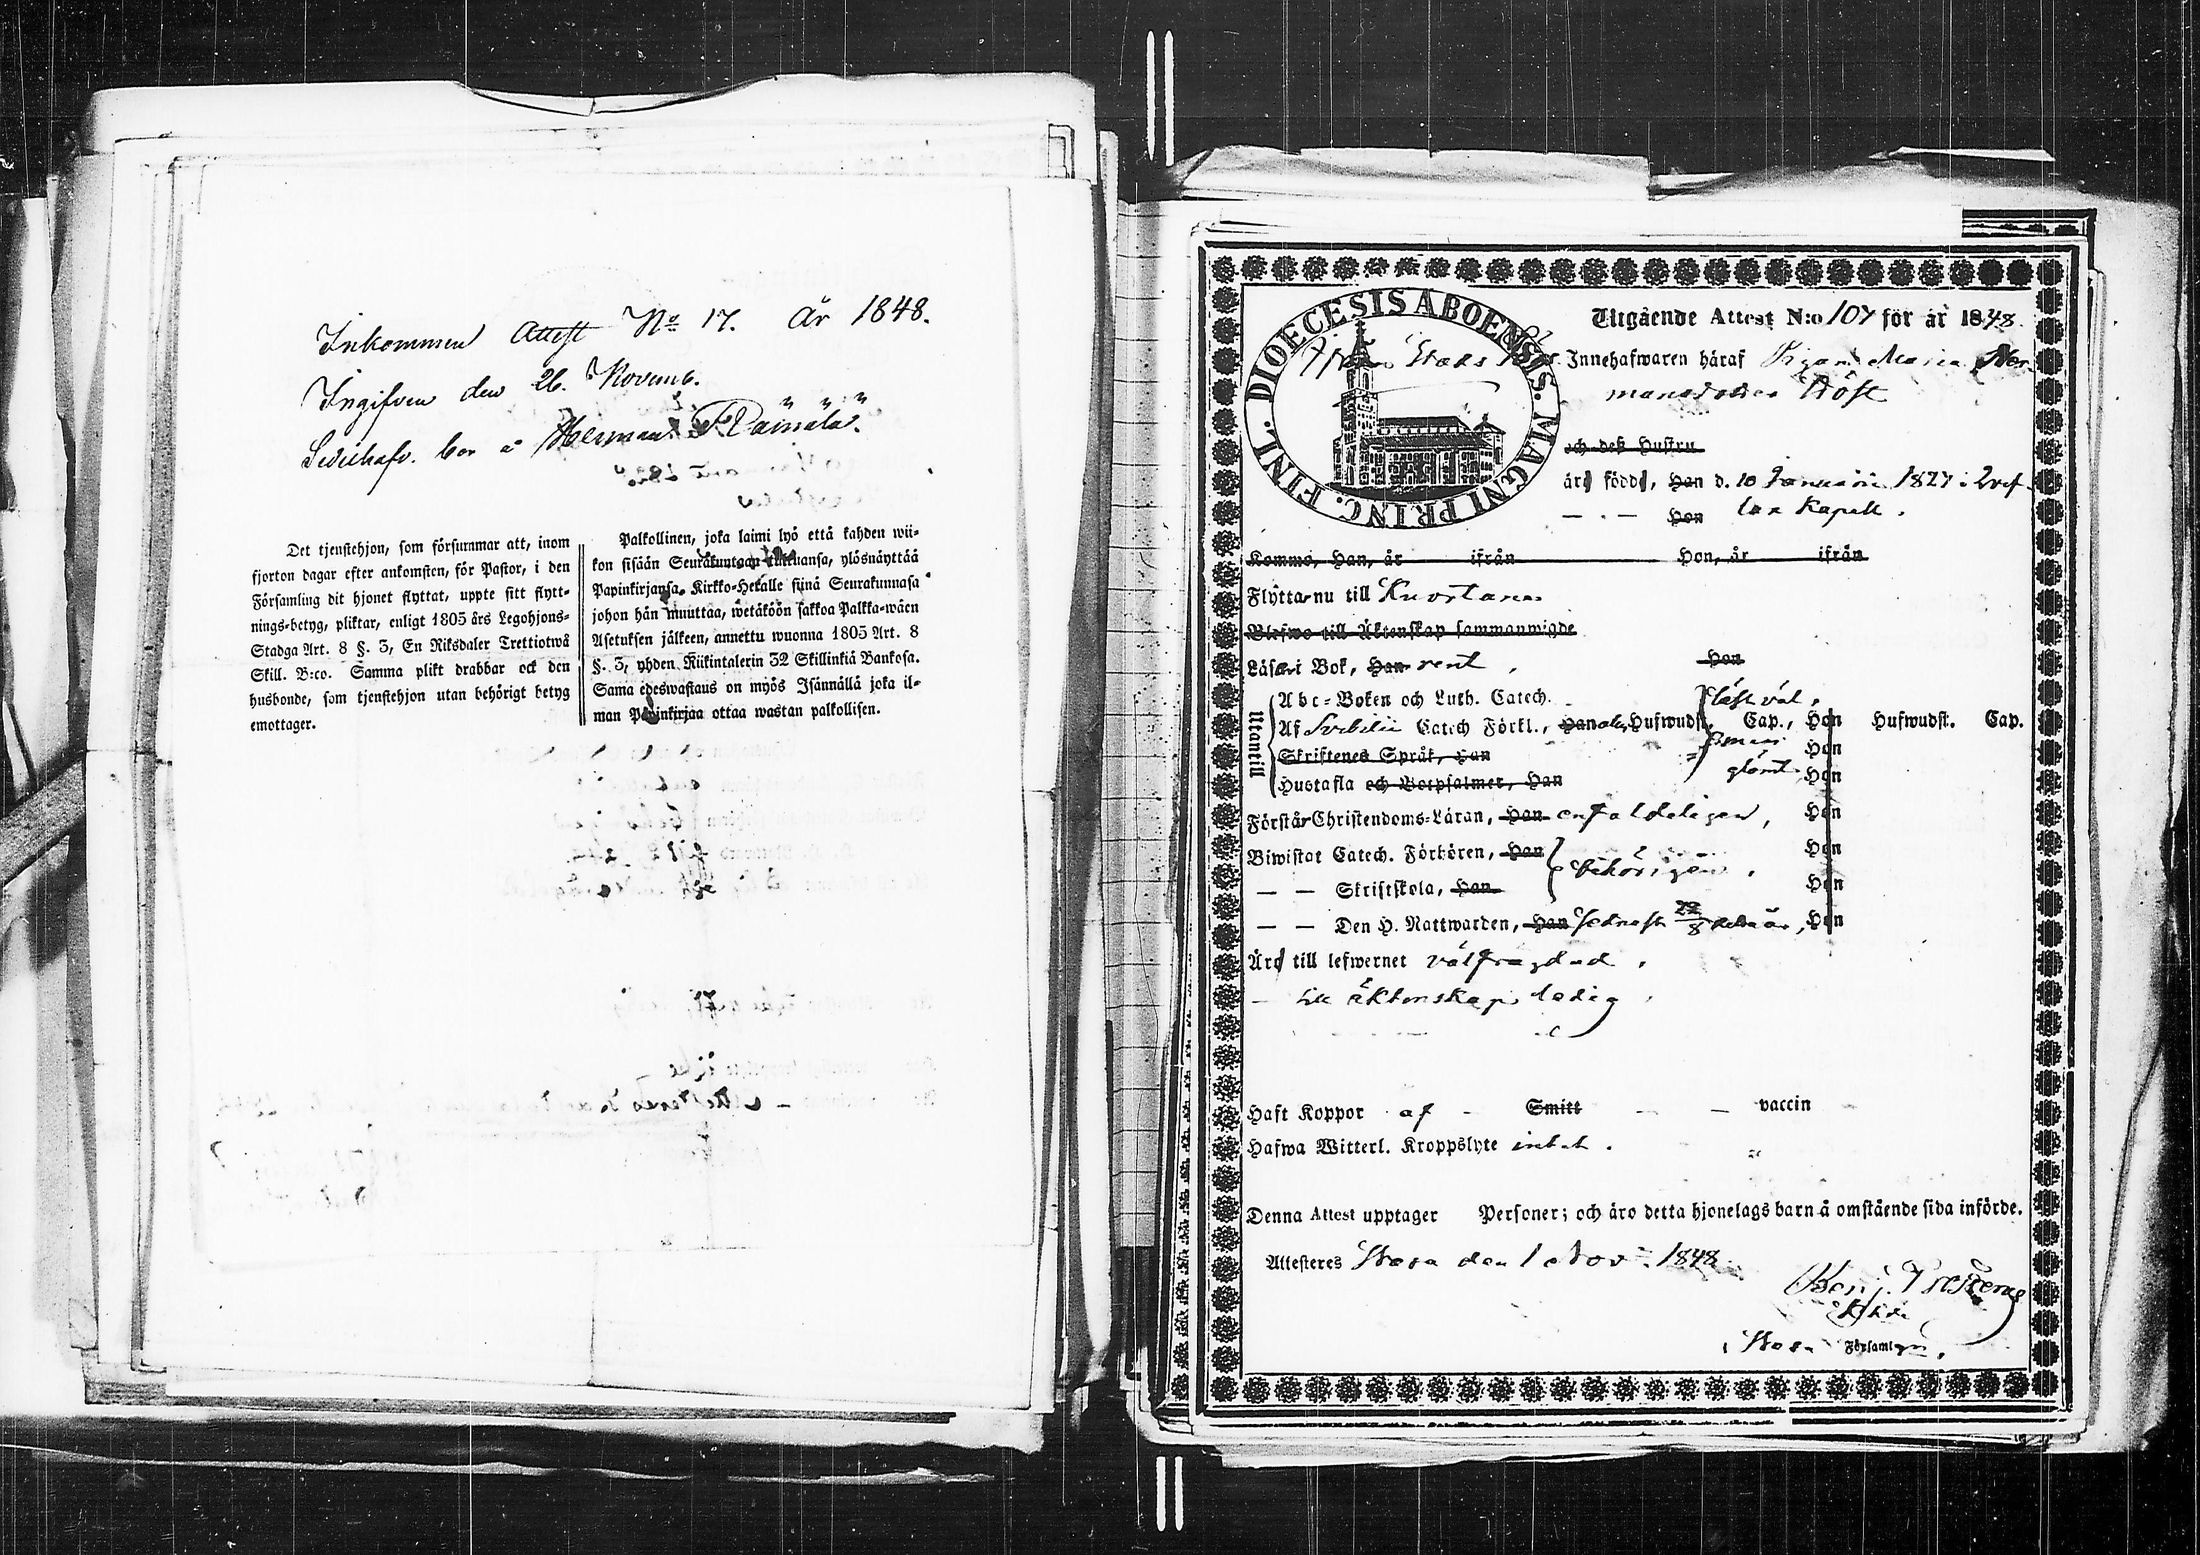 Inkommen Attest No 17. År 1848.
Ingifven den 26. Novemb.
Innehafv. bor å Herman
Det tjenstehjon, som försummar att, inom
fjorton dagar efter ankomsten, för Pastor, i den
Församling dit hjonet flyttat, uppte sitt flytt-
nings-betyg, pliktar, enligt 1805 års Legohjons-
Stadga Art. 8 §. 3, En Riksdaler Trettiotwå
Skill. B:co. Samma plikt drabbar ock den
husbonde, som tjenstehjon utan behörigt betyg
emottager.
Palkollinen, joka laimi lyö että kahden wii-
kon sisään Seurakuntaan tultuansa, ylösnäyttää
Papinkirjansa Kirkko-Herralle siinä Seurakunnasa
johon hän muuttaa, wetäköön sakkoa Palkka-wäen
Asetuksen jälkeen, annettu wuonna 1805 Art. 8
§. 3, yhden Riikintalerin 32 Skillinkiä Bankosa.
Sama edeswastaus on myös Isännällä joka il-
man Papinkirjaa ottaa wastan palkollisen.
DIOECESIS ABOENSIS. MAGNI PRINC. FINL.
Utgående Attest N:o 107 för år 1848.
Innehafwaren häraf Maria Her-
mansdotter
och deß Hustru
äro födde, Han d. 10 Januarii 1827 i
Hon lax Kapell.
Komme, Han, år ifrån Hon, år ifrån
Flytta nu till Kuortane
Blefwo till Äktenskap sammanwigde
Läsa i Bok, Han rent, Hon
Utantill
Abc-Boken och Luth. Catech. läst väl,
Af Svebelii Catech Förkl., Han Hufwudst. Cap., Hon Hufwudst. Cap.
Skriftenes Språk, Han Hon
Hustafla och Botpsalmer, Han glömt Hon
Förstår Christendoms-Läran, Han enfaldeligen, Hon
Biwistat Catech. Förhören, Han behörigen. Hon
— — Skriftskola, Han Hon
— — Den H. Nattwarden, Han sednast 22/8 detta år, Hon
Äro till lefwernet välfrägdad.
— till äktenskap ledig
Haft Koppor af Smitt vaccin
Hafwa Witterl. Kroppslyte intet.
Denna Attest upptager Personer; och äro detta hjonelags barn å omstående sida införde.
Attesteres den 1 Nov. 1848.
Benj.
Församling.